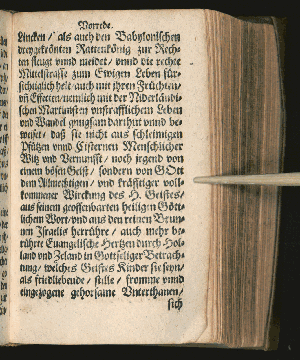 Vorrede.
Lincken / als auch den Babylonischen
dreygekrönten Rattenkönig zur Rech-
ten fleugt vnnd meidet / vnnd die rechte
Mittelstrasse zum Ewigen Leben für-
sichtiglich helt auch mit jhren Früchten /
vñ Effecten / nemlich mit der Niderländi-
schen Martinsten vnsträfflichem Leben
vnd Wandel gnugsam darthut vnnd be-
weiset / daß sie nicht aus schleimigen
Pfützen vnnd Cisternen Menschlicher
Witz vnd Vernunfft / noch jrgend von
einem bösen Geist / sondern von GOtt
dem Allmechtigen / vnd kräfftiger voll-
kommener Wirckung des H. Geistes /
aus seinem geoffenbarten heiligen Gött-
lichem Wort / vnd aus den reinen Brun-
nen Israelis herrühre / auch mehr be-
rührte Euangelische Hertzen durch Hol-
land vnd Zeland in Gottseliger Betrach-
tung / welches Geistes Kinder sie seyn /
als friedliebende / stille / fromme vnnd
eingezogene gehorsame Vnterthanen /
sich